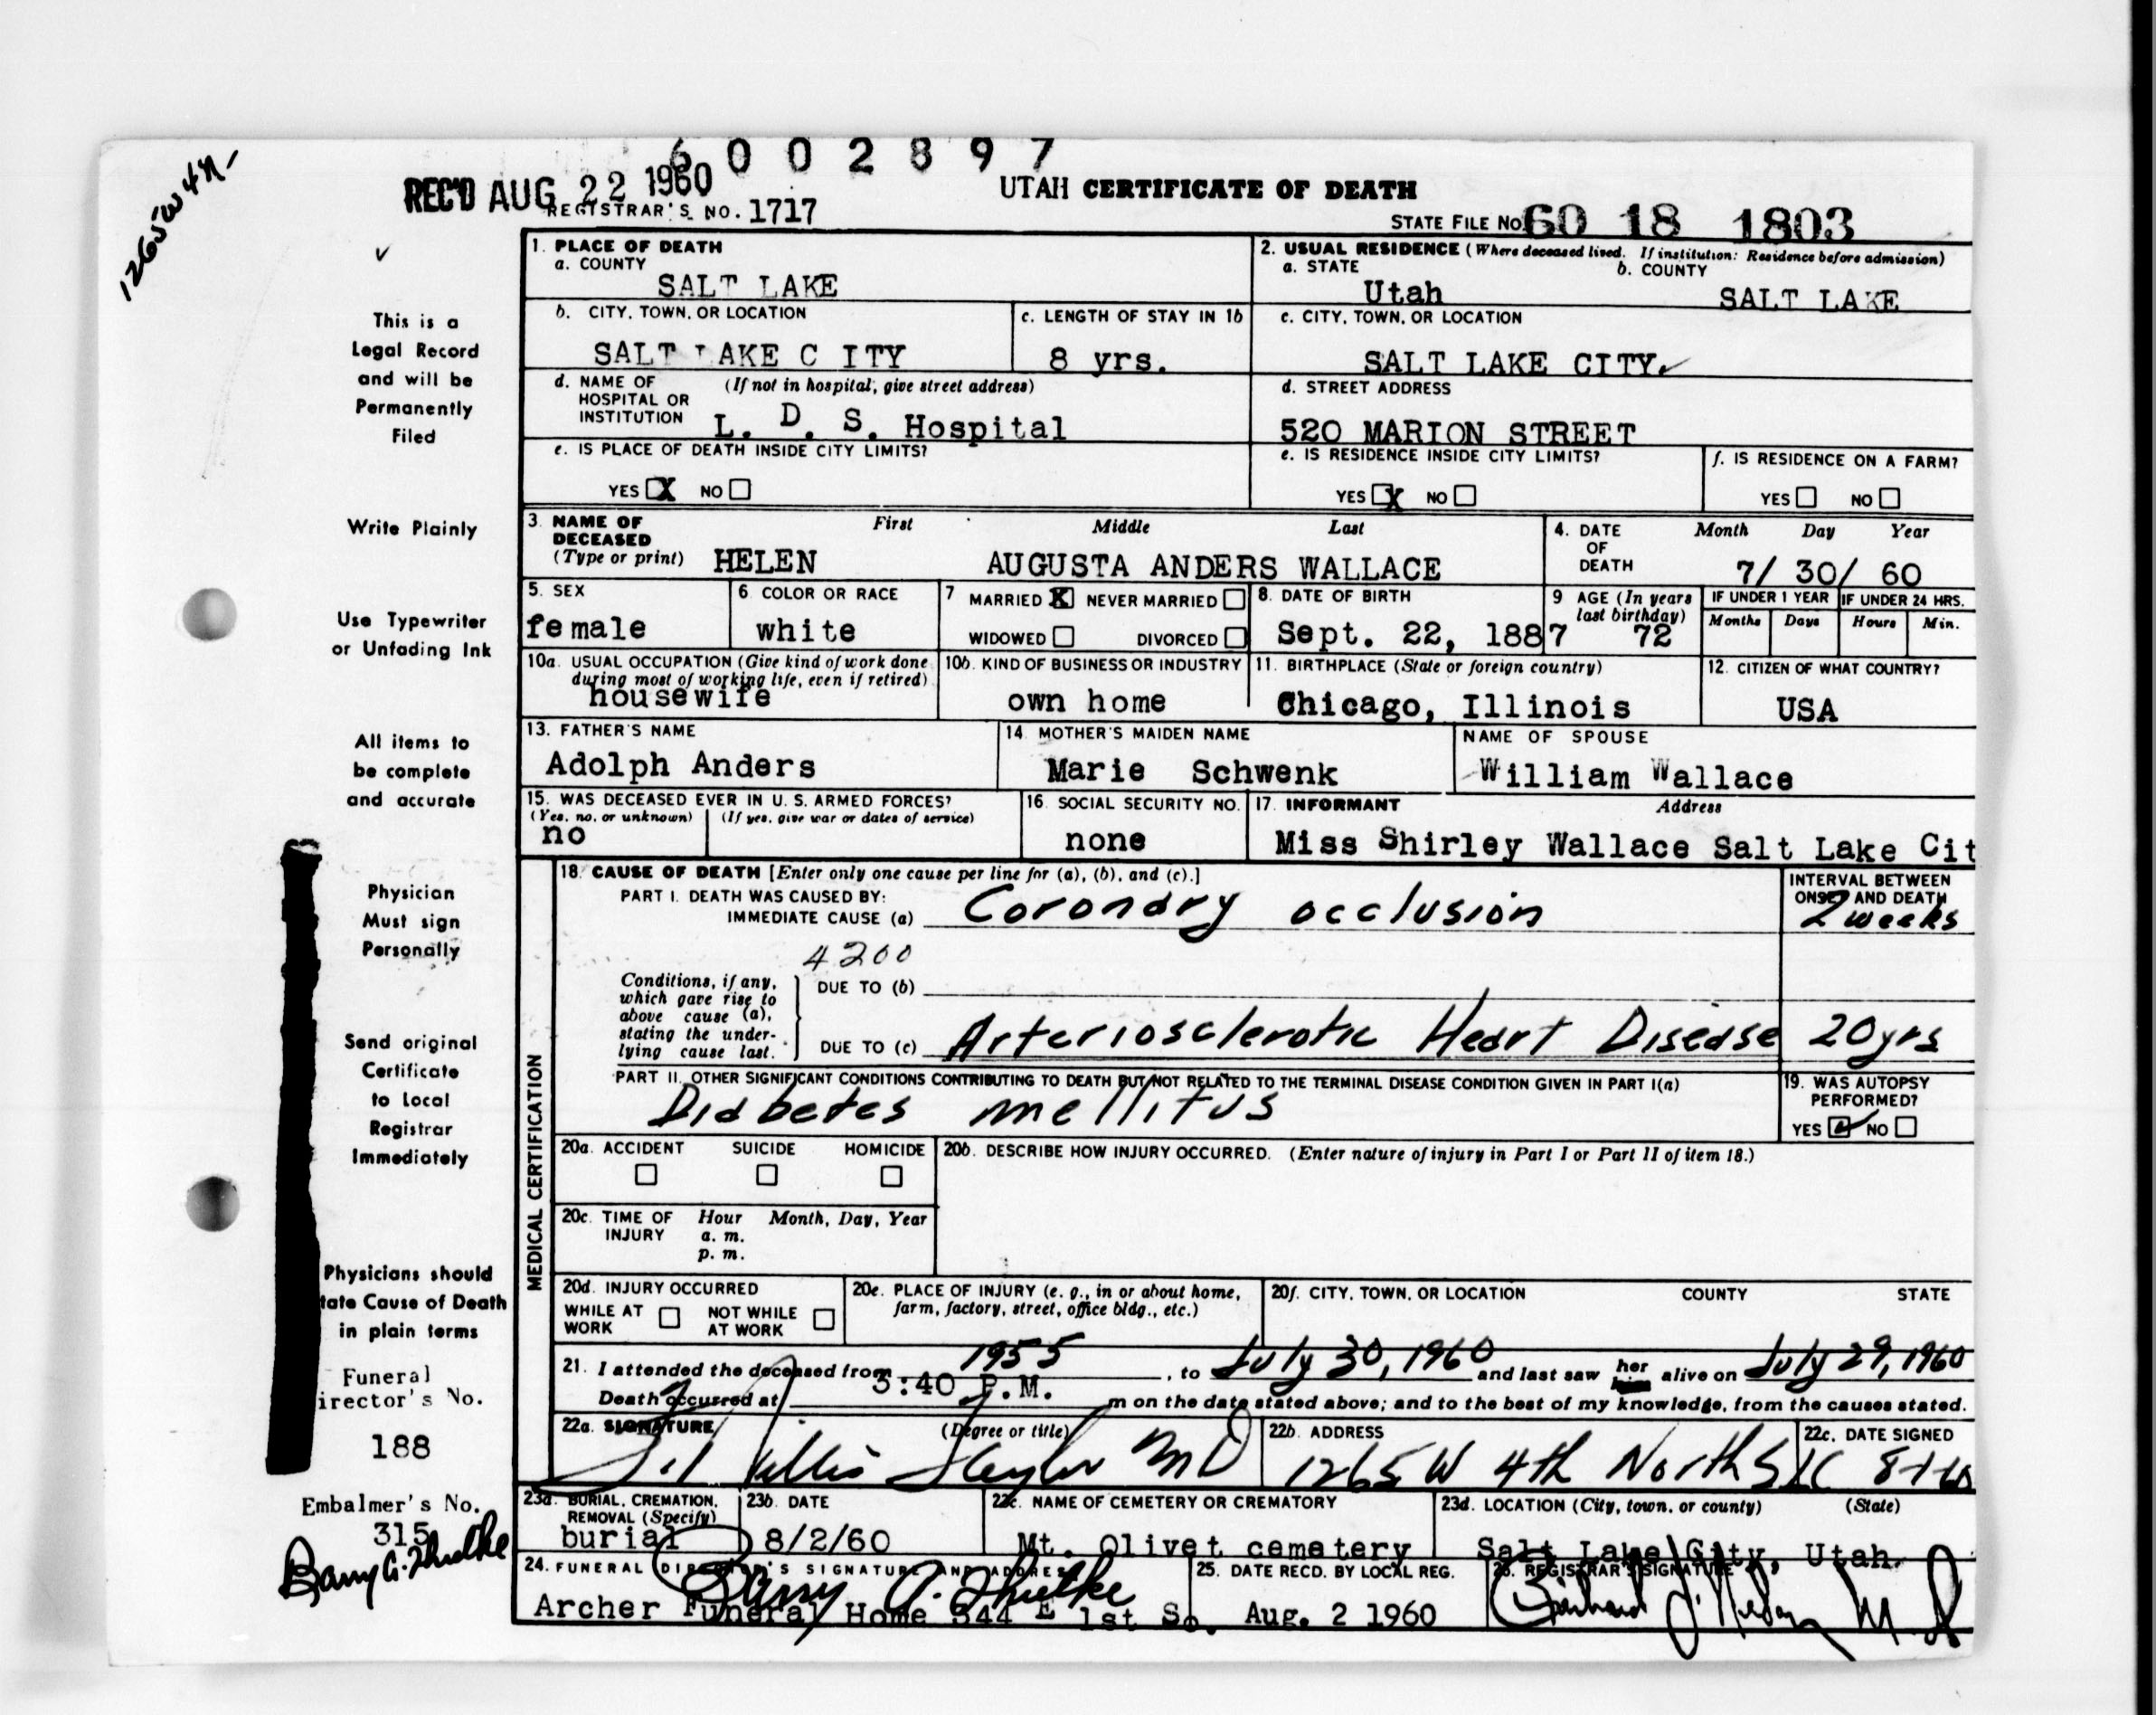 1265 W 4 N-
6002897
REC'D AUG 22 1960
REGISTRAR'S NO. 1717
UTAH CERTIFICATE OF DEATH
STATE FILE NO. 60 18 1803
This is a
Legal Record
and will be
Permanently
Filed
Write Plainly
Use Typewriter
or Unfading Ink
All items to
be complete
and accurate
Physician
Must sign
Personally
Send original
Certificate
to Local
Registrar
Immediately
Physicians should
tate Cause of Death
in plain terms
Funeral
irector's No.
188
Embalmer's No.
315
1. PLACE OF DEATH
a. COUNTY
SALT LAKE
2. USUAL RESIDENCE (Where deceased lived. If institution: Residence before admission)
a. STATE b. COUNTY
Utah SALT LAKE
b. CITY, TOWN, OR LOCATION
SALT LAKE C ITY
c. LENGTH OF STAY IN 1b
8 yrs.
c. CITY, TOWN, OR LOCATION
SALT LAKE CITY
d. NAME OF (If not in hospital, give street address)
HOSPITAL OR
INSTITUTION L. D. S. Hospital
d. STREET ADDRESS
520 MARION STREET
e. IS PLACE OF DEATH INSIDE CITY LIMITS?
YES X NO
e. IS RESIDENCE INSIDE CITY LIMITS?
YES X NO
f. IS RESIDENCE ON A FARM?
YES NO
3. NAME OF First Middle Last
DECEASED
(Type or print) HELEN AUGUSTA ANDERS WALLACE
4. DATE Month Day Year
OF
DEATH 7/ 30/ 60
5. SEX
female
6. COLOR OR RACE
white
7 MARRIED X NEVER MARRIED
WIDOWED DIVORCED
8. DATE OF BIRTH
Sept. 22, 1887
9 AGE (In years
last birthday)
72
IF UNDER 1 YEAR IF UNDER 24 HRS.
Months Days Hours Min.
10a. USUAL OCCUPATION (Give kind of work done
during most of working life, even if retired)
housewife
10b. KIND OF BUSINESS OR INDUSTRY
own home
11. BIRTHPLACE (State or foreign country)
Chicago, Illinois
12. CITIZEN OF WHAT COUNTRY?
USA
13. FATHER'S NAME
Adolph Anders
14. MOTHER'S MAIDEN NAME
Marie Schwenk
NAME OF SPOUSE
William Wallace
15. WAS DECEASED EVER IN U. S. ARMED FORCES?
(Yes, no, or unknown) (If yes, give war or dates of service)
no
16. SOCIAL SECURITY NO.
none
17. INFORMANT Address
Miss Shirley Wallace Salt Lake Cit
MEDICAL CERTIFICATION
18. CAUSE OF DEATH [Enter only one cause per line for (a), (b), and (c).]
PART I. DEATH WAS CAUSED BY:
IMMEDIATE CAUSE (a) Coronary occlusion
INTERVAL BETWEEN
ONSET AND DEATH
2 weeks
4200
Conditions, if any,
which gave rise to
above cause (a),
stating the under-
lying cause last.
DUE TO (b)
DUE TO (c) Arteriosclerotic Heart Disease 20 yrs
PART II. OTHER SIGNIFICANT CONDITIONS CONTRIBUTING TO DEATH BUT NOT RELATED TO THE TERMINAL DISEASE CONDITION GIVEN IN PART I(a)
Diabetes mellitus
19. WAS AUTOPSY
PERFORMED?
YES NO
20a. ACCIDENT SUICIDE HOMICIDE
20b. DESCRIBE HOW INJURY OCCURRED. (Enter nature of injury in Part I or Part II of item 18.)
20c. TIME OF Hour Month, Day, Year
INJURY a. m.
p. m.
20d. INJURY OCCURRED
WHILE AT NOT WHILE
WORK AT WORK
20e. PLACE OF INJURY (e. g., in or about home,
farm, factory, street, office bldg., etc.)
20f. CITY, TOWN, OR LOCATION COUNTY STATE
21. I attended the deceased from 1955, to July 30, 1960 and last saw her alive on July 29, 1960
Death occurred at 3:40 P.M. m on the date stated above; and to the best of my knowledge, from the causes stated.
22a. SIGNATURE (Degree or title)
Taylor MD
22b. ADDRESS
1265 W 4th North SLC
22c. DATE SIGNED
8-1-60
23a. BURIAL, CREMATION,
REMOVAL (Specify)
burial
23b. DATE
8/2/60
23c. NAME OF CEMETERY OR CREMATORY
Mt. Olivet cemetery
23d. LOCATION (City, town, or county) (State)
Salt Lake City, Utah.
24. FUNERAL DIRECTOR'S SIGNATURE AND ADDRESS
Archer Funeral Home 544 E 1st So.
25. DATE RECD. BY LOCAL REG.
Aug. 2 1960
26. REGISTRAR'S SIGNATURE